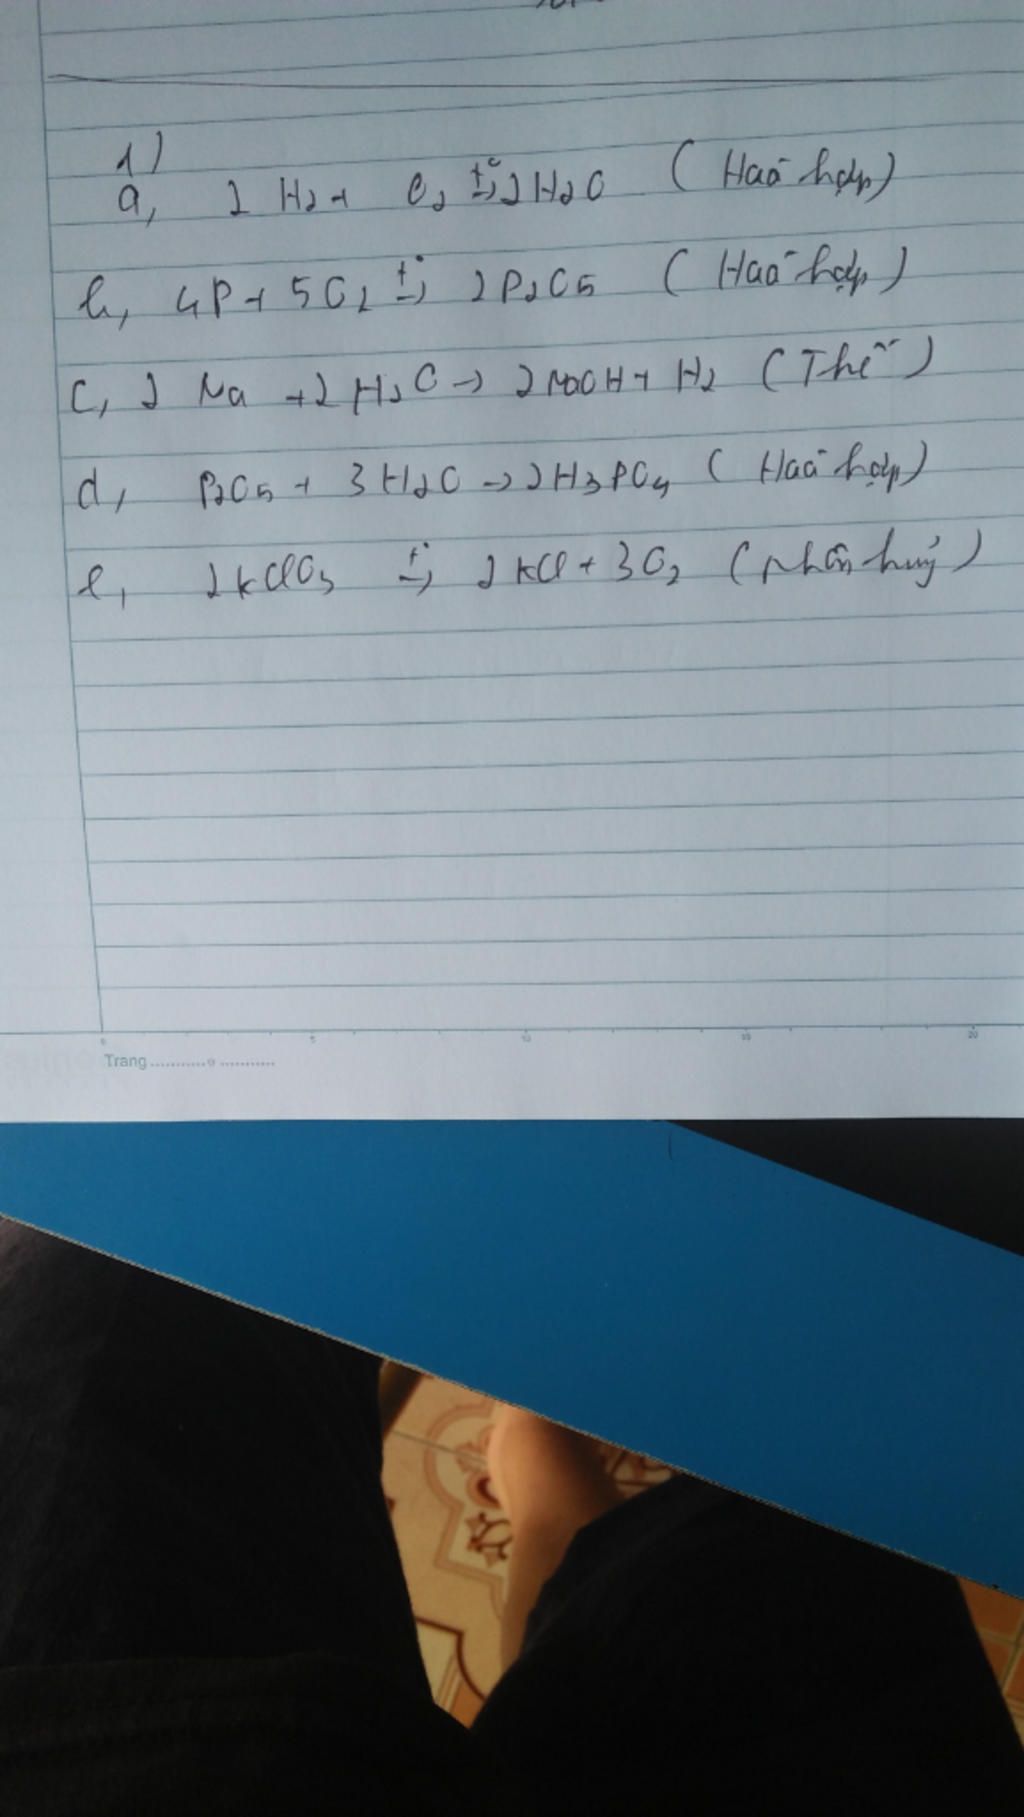 1)
a, 2 H2 + O2 t°→ 2H2O (Hoá hợp)
b, 4P + 5O2 t°→ 2P2O5 (Hoá hợp)
c, 2 Na + 2 H2O → 2NaOH + H2 (Thế)
d, P2O5 + 3H2O → 2H3PO4 (Hoá hợp)
e, 2KClO3 t°→ 2KCl + 3O2 (phân huỷ)
0 5 10 15 20
Trang ........... ...........